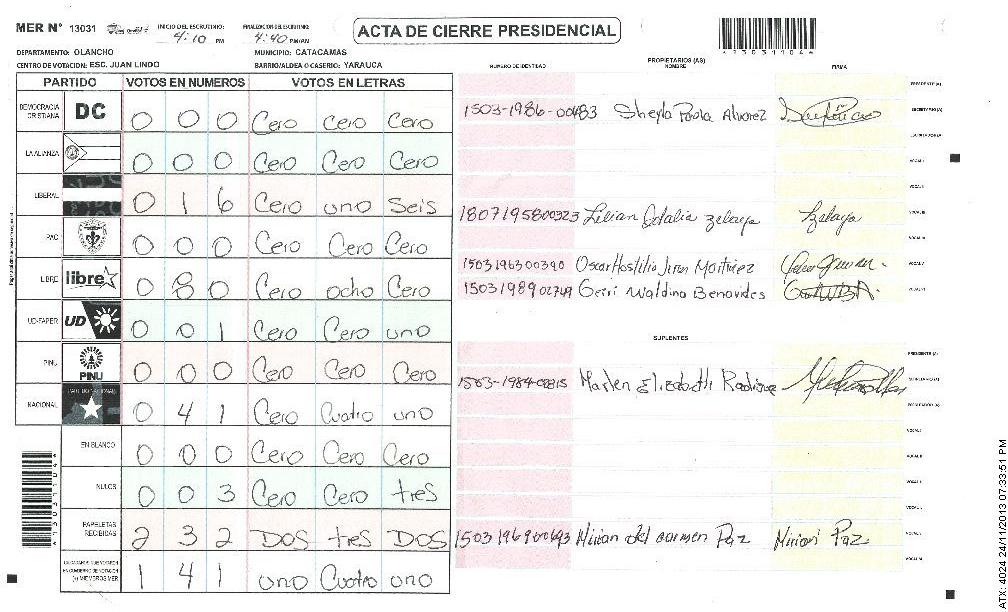 MER N° 13031 INICIO DEL ESCRUTINIO: 4:10 PM FINALIZACION DEL ESCRUTINIO: 4:40 PM/AM ACTA DE CIERRE PRESIDENCIAL
DEPARTAMENTO: OLANCHO MUNICIPIO: CATACAMAS
CENTRO DE VOTACION: ESC. JUAN LINDO BARRIO/ALDEA O CASERIO: YARAUCA
*13031104*
PARTIDO VOTOS EN NUMEROS VOTOS EN LETRAS
DEMOCRACIA CRISTIANA DC 0 0 0 Cero Cero Cero
LA ALIANZA 0 0 0 Cero Cero Cero
LIBERAL 0 1 6 Cero uno Seis
PAC 0 0 0 Cero Cero Cero
LIBRE libre 0 8 0 Cero ocho Cero
UD-FAPER UD 0 0 1 Cero Cero uno
PINU PINU 0 0 0 Cero Cero Cero
NACIONAL 0 4 1 Cero Cuatro uno
EN BLANCO 0 0 0 Cero Cero Cero
NULOS 0 0 3 Cero Cero tres
PAPELETAS RECIBIDAS 2 3 2 DOS tres DOS
1 4 1 uno Cuatro uno
NUMERO DE IDENTIDAD PROPIETARIOS (AS) NOMBRE FIRMA
PRESIDENTE (A)
1503-1986-00483 Sheyla Paola Alvarez SECRETARIO (A)
ESCRUTADOR (A)
VOCAL I
VOCAL II
1807195800323 Lilian Odalia Zelaya Zelaya VOCAL III
VOCAL IV
1503196300390 Oscar Hostilio Martinez VOCAL V
1503198902749 Geiri Waldina Benavides VOCAL VI
SUPLENTES
PRESIDENTE (A)
Marlen Elizabeth SECRETARIO (A)
ESCRUTADOR (A)
VOCAL I
VOCAL II
VOCAL III
VOCAL IV
Mirian del carmen Paz Mirian Paz VOCAL V
VOCAL VI
*13031104*
ATX: 4024 24/11/2013 07:33:51 PM